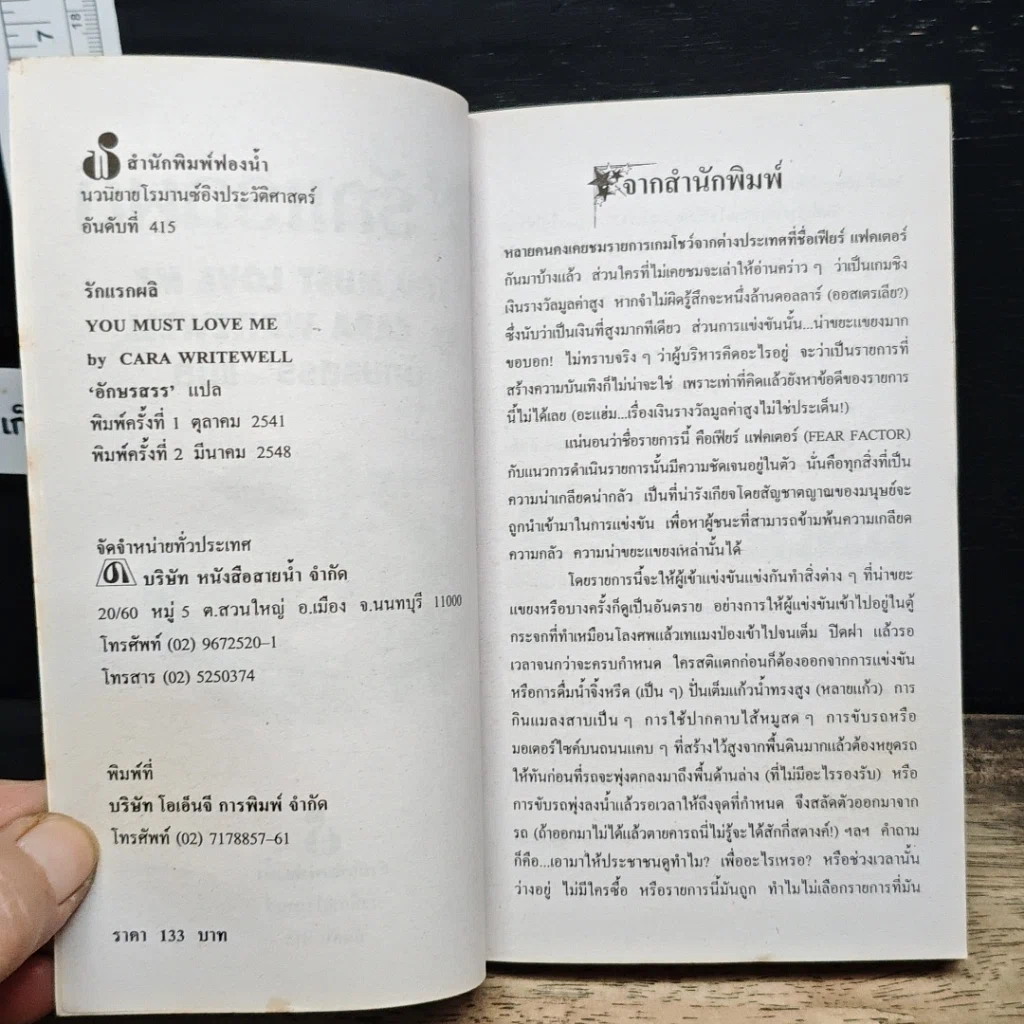 สำนักพิมพ์ฟองน้ำ
นวนิยายโรมานซ์อิงประวัติศาสตร์
อันดับที่ 415
รักแรกผลิ
YOU MUST LOVE ME
by CARA WRITEWELL
'อักษรสรร' แปล
พิมพ์ครั้งที่ 1 ตุลาคม 2541
พิมพ์ครั้งที่ 2 มีนาคม 2548
จัดจำหน่ายทั่วประเทศ
บริษัท หนังสือสายน้ำ จำกัด
20/60 หมู่ 5 ต.สวนใหญ่ อ.เมือง จ.นนทบุรี 11000
โทรศัพท์ (02) 9672520-1
โทรสาร (02) 5250374
พิมพ์ที่
บริษัท โอเอ็นจี การพิมพ์ จำกัด
โทรศัพท์ (02) 7178857-61
ราคา 133 บาท
จากสำนักพิมพ์
หลายคนคงเคยชมรายการเกมโชว์จากต่างประเทศที่ชื่อเฟียร์ แฟคเตอร์
กันมาบ้างแล้ว ส่วนใครที่ไม่เคยชมจะเล่าให้อ่านคร่าว ๆ ว่าเป็นเกมชิง
เงินรางวัลมูลค่าสูง หากจำไม่ผิดรู้สึกจะหนึ่งล้านดอลลาร์ (ออสเตรเลีย?)
ซึ่งนับว่าเป็นเงินที่สูงมากทีเดียว ส่วนการแข่งขันนั้น...น่าขยะแขยงมาก
ขอบอก! ไม่ทราบจริง ๆ ว่าผู้บริหารคิดอะไรอยู่ จะว่าเป็นรายการที่
สร้างความบันเทิงก็ไม่น่าจะใช่ เพราะเท่าที่คิดแล้วยังหาข้อดีของรายการ
นี้ไม่ได้เลย (อะแฮ่ม...เรื่องเงินรางวัลมูลค่าสูงไม่ใช่ประเด็น!)
แน่นอนว่าชื่อรายการนี้ คือเฟียร์ แฟคเตอร์ (FEAR FACTOR)
กับแนวการดำเนินรายการนั้นมีความชัดเจนอยู่ในตัว นั่นคือทุกสิ่งที่เป็น
ความน่าเกลียดน่ากลัว เป็นที่น่ารังเกียจโดยสัญชาตญาณของมนุษย์จะ
ถูกนำเข้ามาในการแข่งขัน เพื่อหาผู้ชนะที่สามารถข้ามพ้นความเกลียด
ความกลัว ความน่าขยะแขยงเหล่านั้นได้
โดยรายการนี้จะให้ผู้เข้าแข่งขันแข่งกันทำสิ่งต่าง ๆ ที่น่าขยะ
แขยงหรือบางครั้งก็ดูเป็นอันตราย อย่างการให้ผู้แข่งขันเข้าไปอยู่ในตู้
กระจกที่ทำเหมือนโลงศพแล้วเทแมงป่องเข้าไปจนเต็ม ปิดฝา แล้วรอ
เวลาจนกว่าจะครบกำหนด ใครสติแตกก่อนก็ต้องออกจากการแข่งขัน
หรือการดื่มน้ำจิ้งหรีด (เป็น ๆ) ปั่นเต็มแก้วน้ำทรงสูง (หลายแก้ว) การ
กินแมลงสาบเป็น ๆ การใช้ปากคาบไส้หมูสด ๆ การขับรถหรือ
มอเตอร์ไซค์บนถนนแคบ ๆ ที่สร้างไว้สูงจากพื้นดินมากแล้วต้องหยุดรถ
ให้ทันก่อนที่รถจะพุ่งตกลงมาถึงพื้นด้านล่าง (ที่ไม่มีอะไรรองรับ) หรือ
การขับรถพุ่งลงน้ำแล้วรอเวลาให้ถึงจุดที่กำหนด จึงสลัดตัวออกมาจาก
รถ (ถ้าออกมาไม่ได้แล้วตายคารถนี่ไม่รู้จะได้สักกี่สตางค์!) ฯลฯ คำถาม
ก็คือ...เอามาให้ประชาชนดูทำไม? เพื่ออะไรเหรอ? หรือช่วงเวลานั้น
ว่างอยู่ ไม่มีใครซื้อ หรือรายการนี้มันถูก ทำไมไม่เลือกรายการที่มัน
7
18